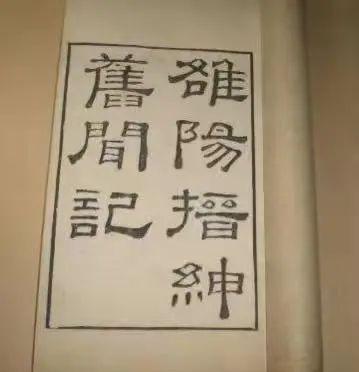 雒陽搢紳
舊聞記